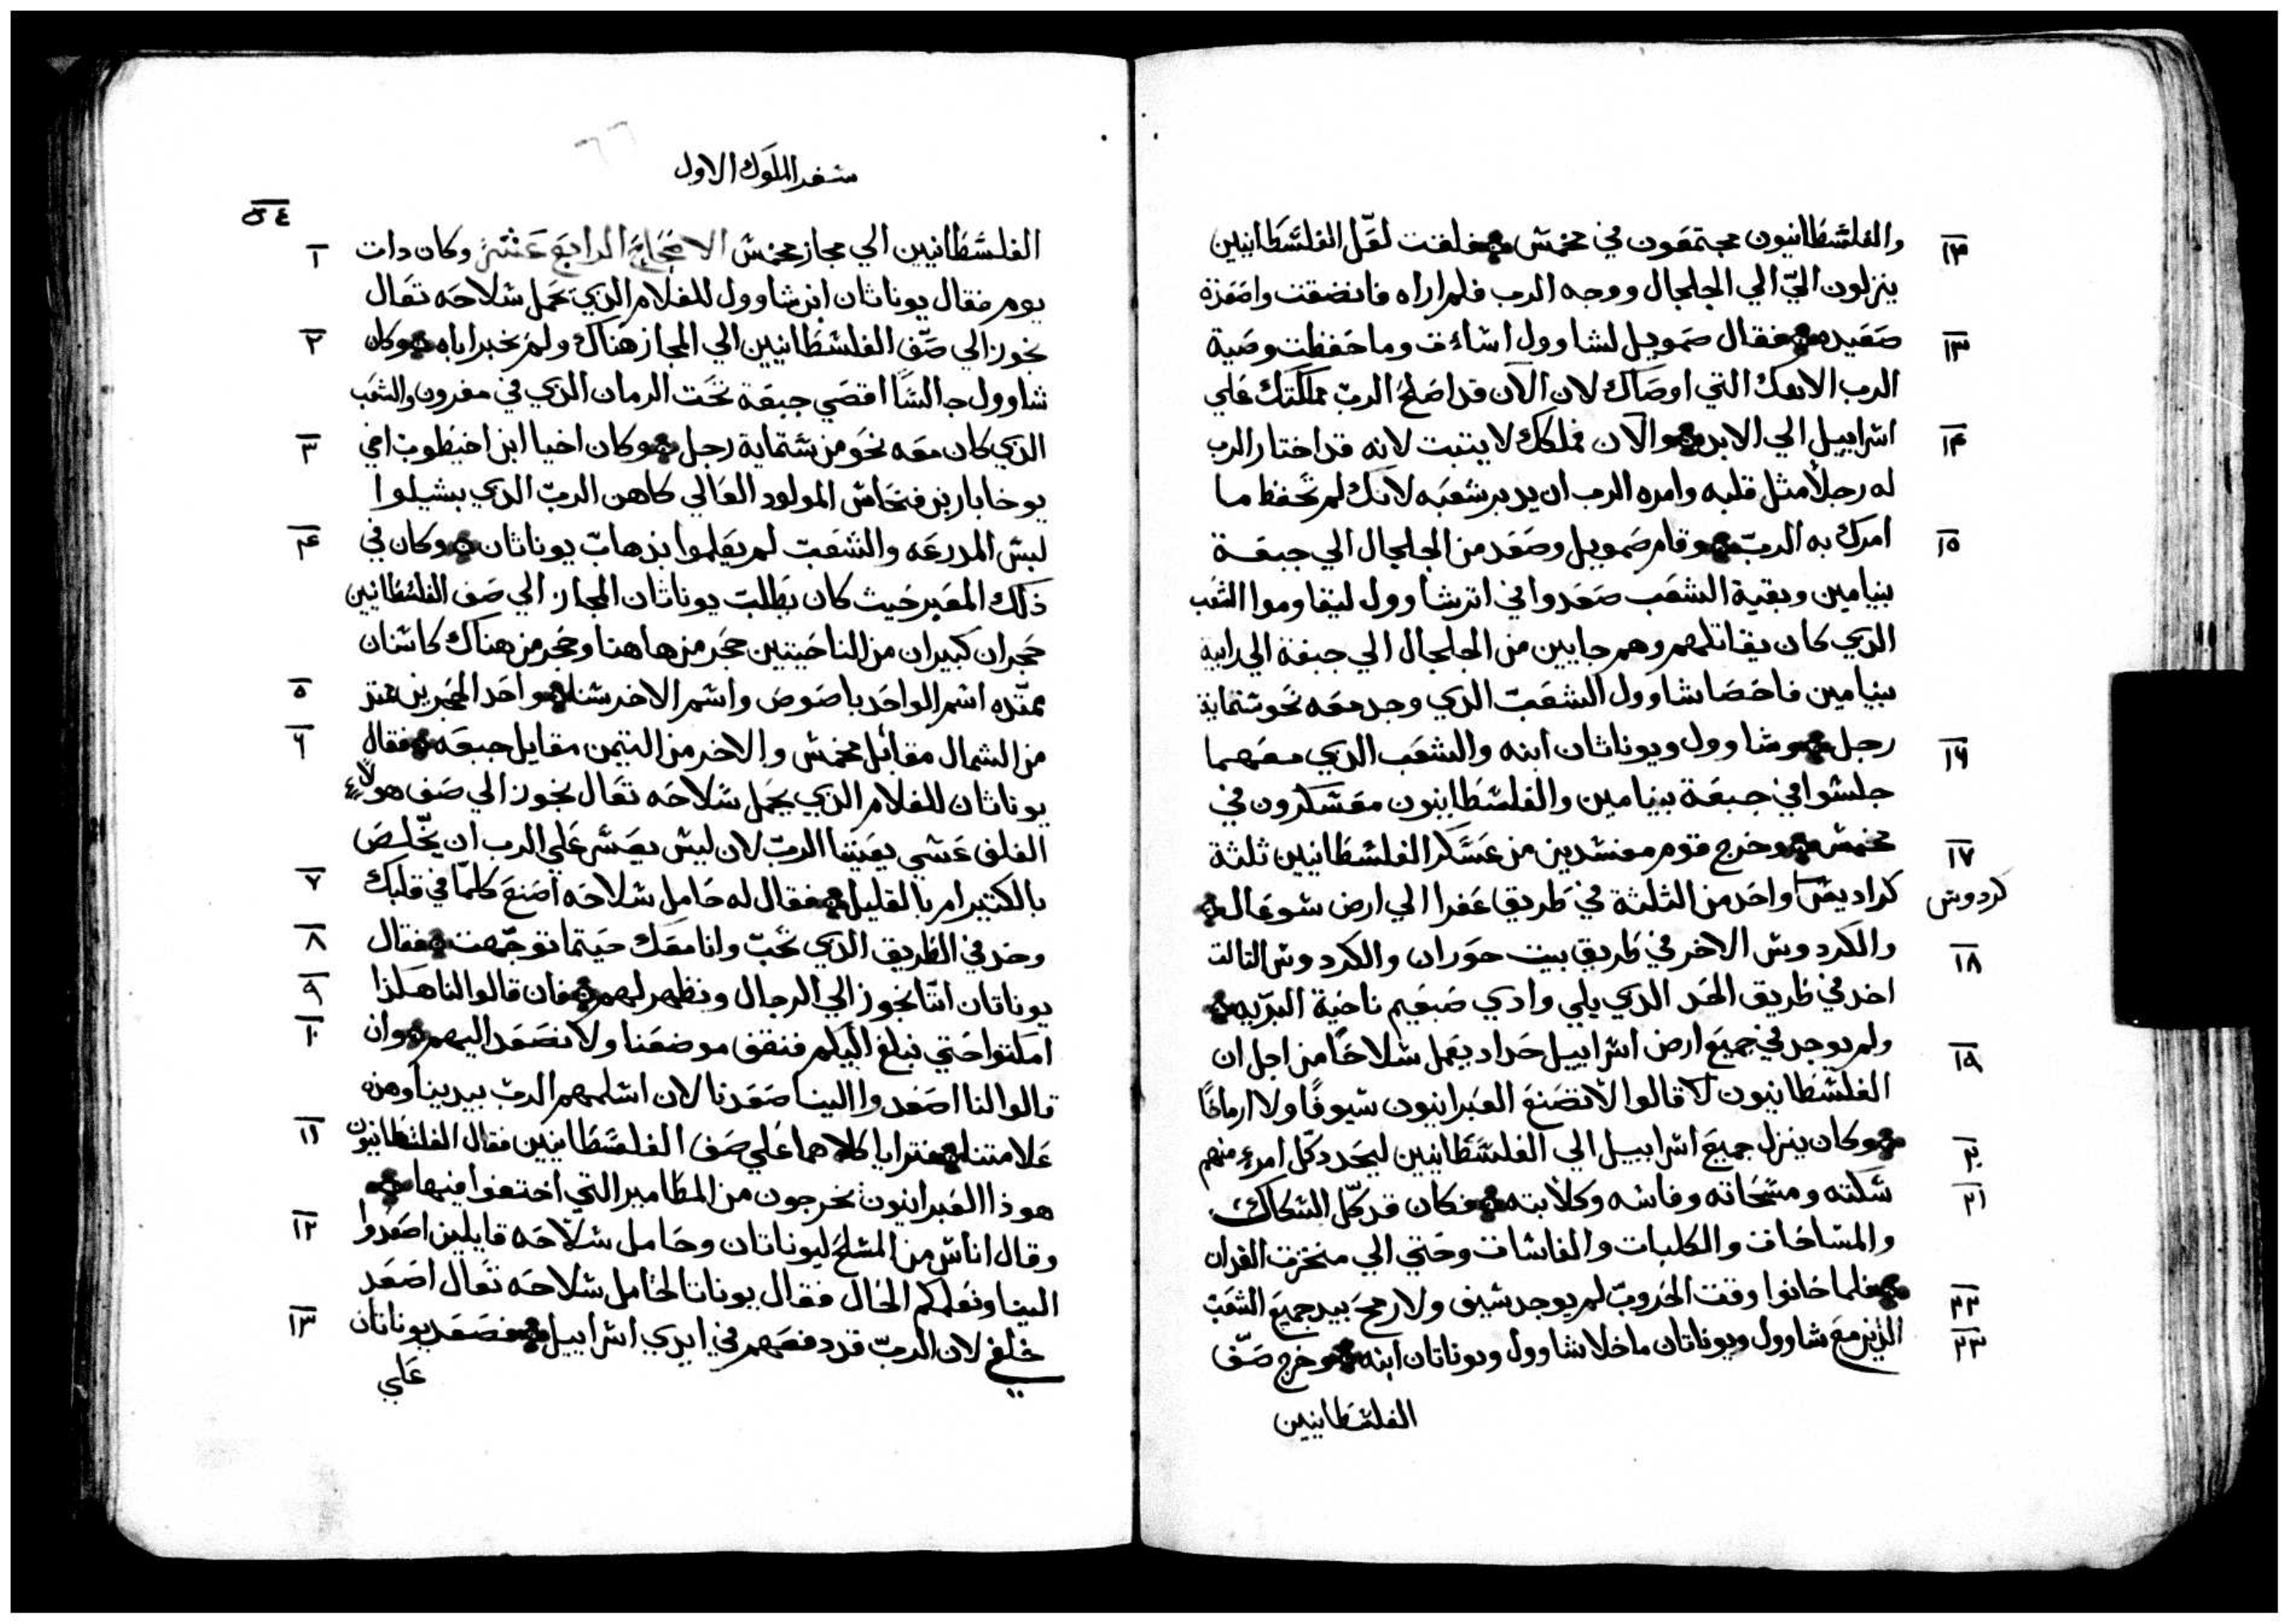 والفلشطانيون مجتمعون في مخمش فخلفت لعّل الفلشطانيين
١٢
ينزلون اليّ الي الجلجال ووجه الرب فلم اراه فانضقت واصَعَدة
صَعَيده فقال صَمويل لشاوول اشاءت وما حَفظت وصَية
١٣
الرب الاهك التي اوصَاك لان الآن قد اصَلحَ الربّ مملكتك عَلي
اشراييل الي الابد والآن فملكك لا يتبت لانه قد اختار الرب
١٤
له رجلاً مثل قلبه وامره الرب ان يدبر شعَبَه لانك لم تحَفظ ما
امرك به الربّ وقام صَمويل وصَعَد من الجلجال الي جبعَة
١٥
بنيامين وبقية الشعَب صَعَدوا في اتر شاوول ليقاوموا الشعَب
الذي كان يقاتلهم وهم جايين من الجلجال الي جبعة الي رابية
بنيامين فاحَصَا شاوول الشعَبّ الذي وجد معَه نحَو شتماية
رجل وشاوول ويوناثان ابنه والشعَب الذي معَهما
١٦
جلشوا في جبعَة بنيامين والفلشطانيون معَشكرون في
مخمش وخرج قوم مفشدين من عَشَكر الفلشطانيين ثلثة
١٧
كراديش واحَد من الثلثة في طَريق عَفرا الي ارض شوعَال
كردوش
والكردوش الاخر في طريق بيت حَوران والكردوش التالت
١٨
اخد في طريق الحَد الذي يلي وادي صَبعَيم ناحَية البرّيه
ولم يوجد في جميعَ ارض اشراييل حَداد يعَمل شلاحَاً من اجل ان
١٩
الفلشطانيون قالوا لا تصَنعَ العَبرانيون شيوفًا ولا ارماحًا
وكان ينزل جميعَ اشراييل الي الفلشَطَانيين ليحَدد كّل امرءٍ منهم
٢٠
شكته ومشحَاته وفاشه وكلابته فكان قد كّل الشكاك
٢١
والمشاحَات والكلبات والفاشات وحَتي الي منخزت الفدان
فلما حَانوا وقت الحَروبّ لم يوجد شيف ولا رمحَ بيد جميعَ الشعَبّ
٢٢
الذين معَ شاوول ويوناتان ما خلا شاوول ويوناتان ابنه وخرج صَفّ
٢٣
الفلشطانيين
شفر الملوك الاول
٥٤
الفلشطانيين الي مجاز مخمش الاصَحَاحَ الرابعَ عَشَرَ وكان دات
١
يوم فقال يوناثان ابن شاوول للغلام الذي يحَمل شلاحَه تعَال
نجوز الي صَفّ الفلشطانيين الي المجاز هناك ولم يخبر اباه وكان
٢
شاوول جالشًا اقصَي جبعَة تحَت الرمان الذي في مغرون والشعَب
الذي كان معَه نحَو من شتماية رجل وكان احيا ابن احيَطوب اخي
٣
يوخابار بن فنحَاش المولود العَالي كاهن الربّ الذي بشيلوا
لبش المدرعَه والشعَبّ لم يعَلموا بذهابّ يوناثان وكان في
٤
ذلك المعَبر حَيث كان يطلبّ يوناثان المجاز الي صَف الفلشطانيين
حَجران كبيران من الناحَيتين حَجر من هاهنا وحَجر من هناك كاشنان
ممتّده اشم الواحَد باصَوصَ واشم الاخر شنا واحَد الحَجرين ممتد
٥
من الشمال مقابل مخمش والاخر من التيمن مقابل جبعَه فقال
٦
يوناثان للغلام الذي يحَمل شَلاحَه تعَال نجوز الي صَف هولاءِ
الغلف عَشي يعَيننا الربّ لان ليش يعَشر عَلي الرب ان يخّلصَ
بالكتير ام بالقليل فقال له حَامل شلاحَه اصَنعَ كلمّا في قلبك
٧
وخد في الطريق الذي تحَبّ وانا معَك حَيتما توجّهت فقال
٨
يوناتان انّنا نجوز الي الرجال ونظهر لهم فان قالوا لنا هكذا
٩
امكتوا حَتي نبلغ اليكم فنقف موضعَنا ولا نصَعَد اليهم وان
١٠
قالوا لنا اصَعَدوا الينا صَعَدنا لان اشلمهم الربّ بيدينا وهذه
علامتنا فترايا كلاهما عَلي صَف الفلشَطَانيين فقال الفلشطانيون
١١
هوذا العَبرانيون يخرجون من المطامير التي اختفوا فيها
وقال اناش من المشلحَ ليوناتان وحَامل شلاحَه قايلين اصَعَدوا
١٢
الينا ونعَلمكم الحَال فقال يوناتا لحَامل شلاحَه تعَال اصَعَد
خلفي لان الربّ قد دفعَهم في ايدي اشراييل فصَعَد يوناتان
١٣
عَلي